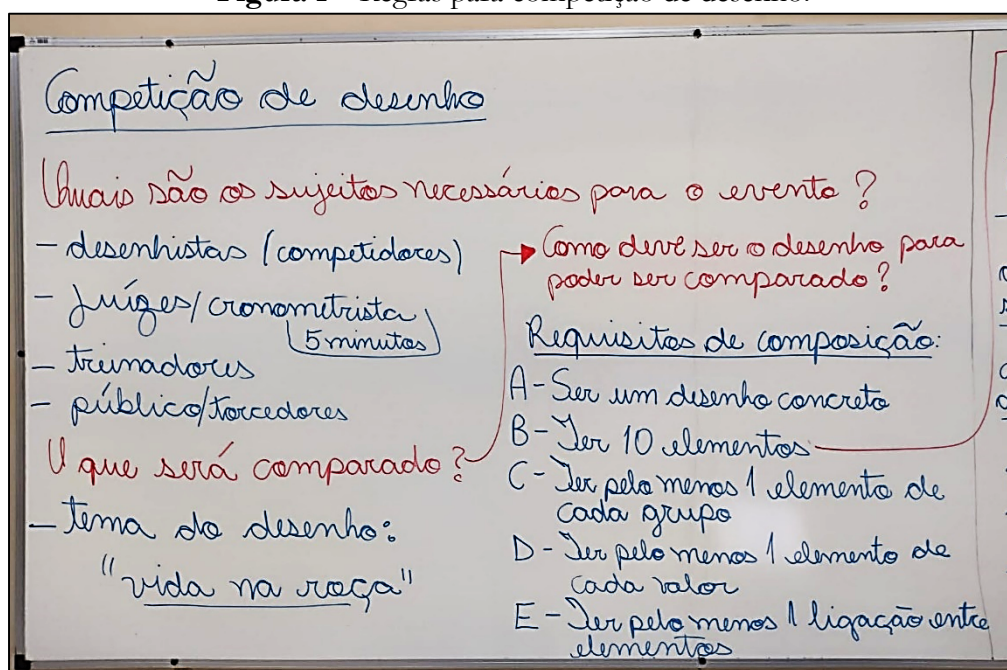 Figura 1 – Regras para competição de desenho.
Competição de desenho
Quais são os sujeitos necessários para o evento?
- desenhistas (competidores)
- Juízes/cronometrista
5 minutos
- treinadores
- público/torcedores
O que será comparado?
- tema do desenho:
"vida na roça"
Como deve ser o desenho para
poder ser comparado?
Requisitos de composição:
A - Ser um desenho concreto
B - Ter 10 elementos
C - Ter pelo menos 1 elemento de
cada grupo
D - Ter pelo menos 1 elemento de
cada valor
E - Ter pelo menos 1 ligação entre
elementos